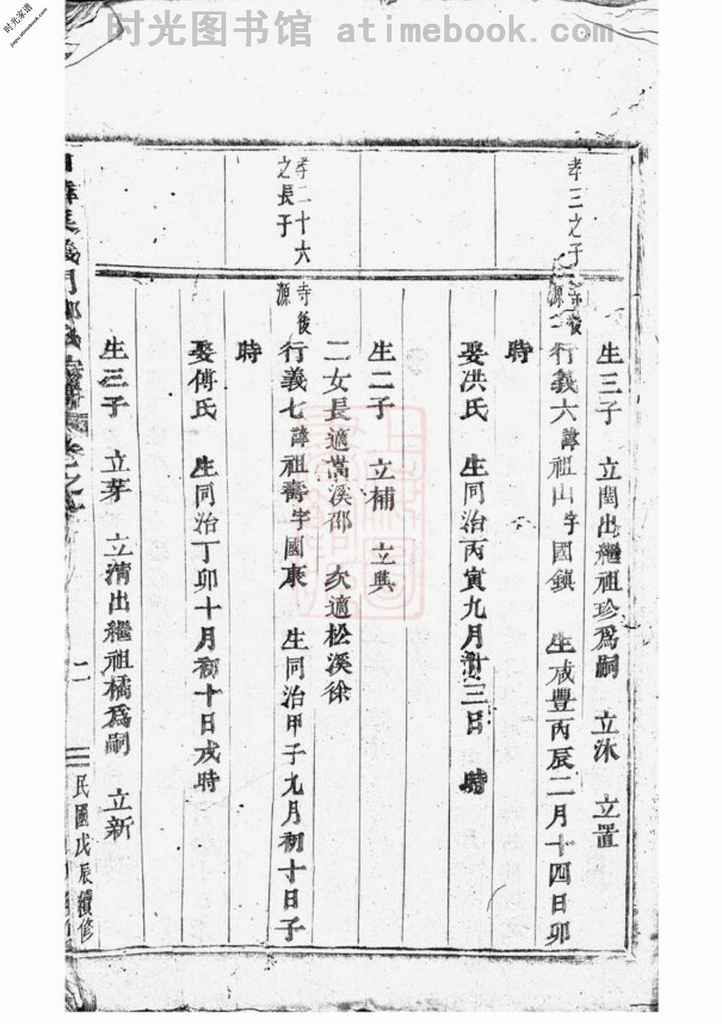 时光图书馆 atimebook.com
时光家谱
jiapu.atimebook.com
生三子 立閏出繼祖珍爲嗣 立沐 立置
孝三之子
寺後源
行義六諱祖山字國鎮 生咸豐丙辰二月十四日卯
時
娶洪氏 生同治丙寅九月廿三日 時
生二子 立補 立典
二女長適嵩溪邵 次適松溪徐
孝二十六之長子
寺後源
行義七諱祖壽字國康 生同治甲子九月初十日子
時
娶傅氏 生同治丁卯十月初十日戌時
生三子 立芽 立清出繼祖橘爲嗣 立新
義門
二
民國戊辰續修